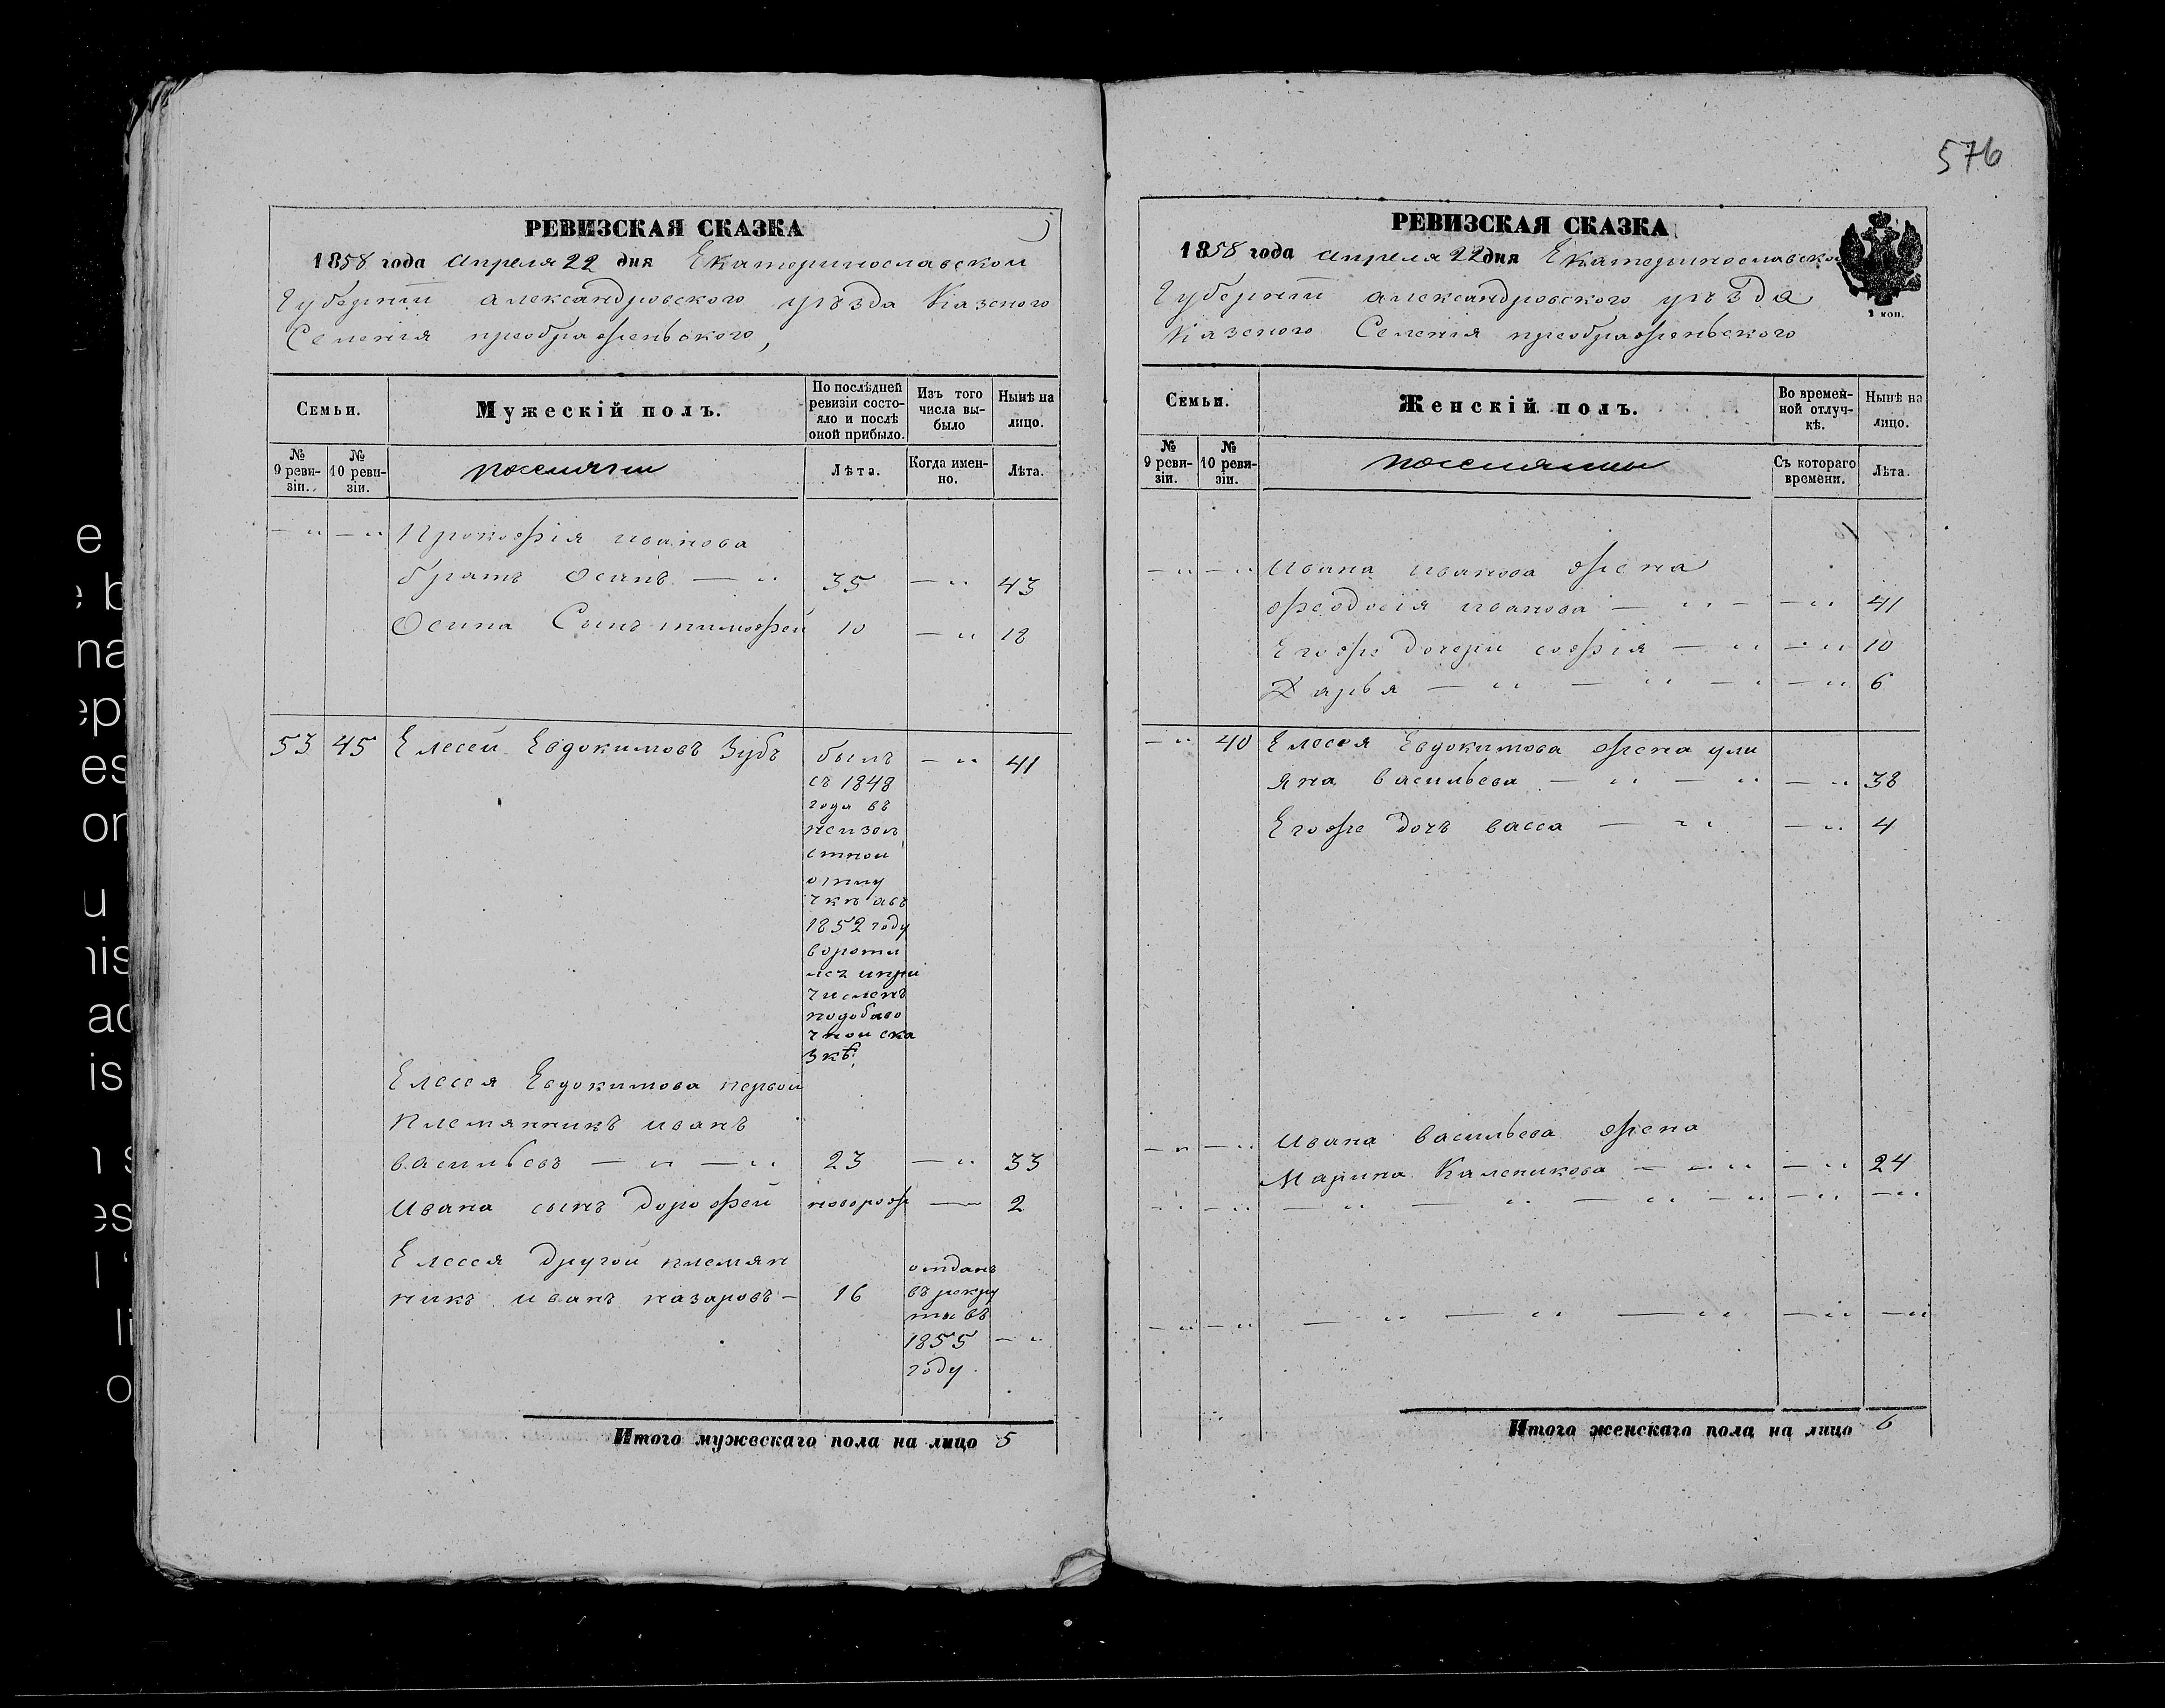 576
РЕВИЗСКАЯ СКАЗКА
1858 года Апреля 22 дня Екатеринославской
Губернiи александровского уѣзда Казеного
Селенiя преображеньского,
Семьи.
Мужескiй полъ.
По послѣдней ревизiи состояло и послѣ оной прибыло.
Изъ того числа выбыло
Нынѣ на лицо.
№ 9 ревизiи.
№ 10 ревизiи.
поселяни
Лѣта.
Когда именно.
Лѣта.
Прокофiя иванова
братъ Осипъ — " 35 — " 43
Осипа Сынъ тимофей 10 — " 18
53 45 Елесей Евдокимовъ Зубъ былъ — " 41
съ 1848
года въ
неизве
стной
отлу
чкѣ авъ
1852 году
вороти
лся ипри
численъ
подобаво
чной ска
зкѣ
Елесея Евдокимова первой
племянникъ иванъ
васильевъ — " — " 23 — " 33
Ивана сынъ дорофей новорож — 2
Елесея другой племян
никъ иванъ назаровъ — 16 отданъ
въ рекру
ты въ
1855 — "
году
Итого мужескаго пола на лицо 5
РЕВИЗСКАЯ СКАЗКА
1858 года апреля 22 дня Екатеринославской
Губернiи александровского уѣзда
Казеного Селенiя преображеньского
2 коп.
Семьи.
Женскiй полъ.
Во временной отлучкѣ.
Нынѣ на лицо.
№ 9 ревизiи.
№ 10 ревизiи.
поселянки
Съ котораго времени.
Лѣта.
— " — " Ивана иванова жена
феодосiя иванова — " — — " 41
Егоже дочери софiя — " — " 10
Дарья — " — " — " — " 6
— " 40 Елесея Евдокимова жена ули
яна васильева — " — " — " 38
Егоже дочь васса — " — " 4
— " — " Ивана васильева жена
Марина Каленикова — " " — " 24
— " — " — " — " — " — " — " — "
— " — " — " — " — " — " — "
Итого женскаго пола на лицо 6